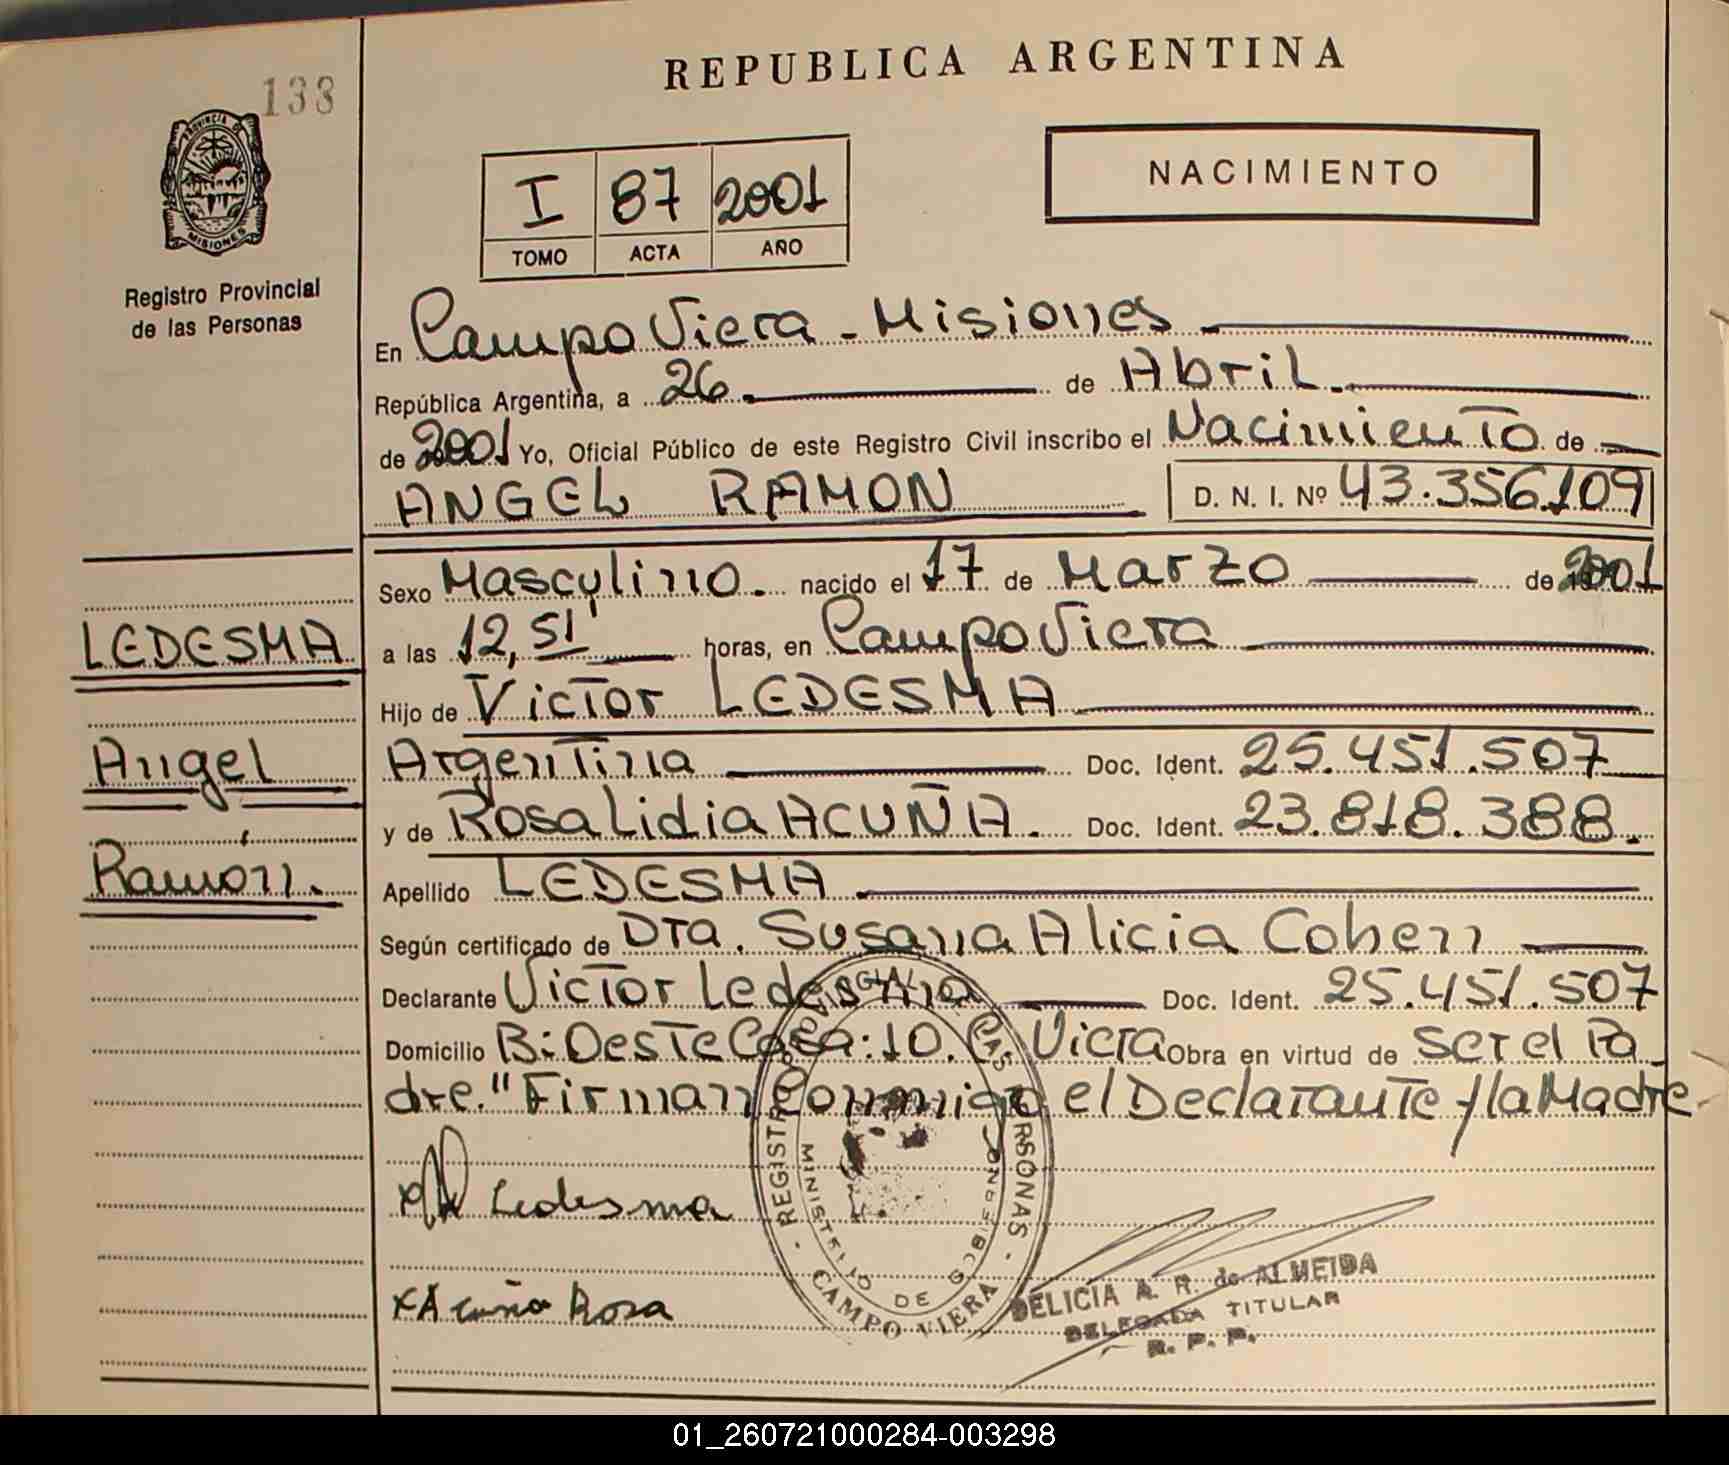 REPUBLICA ARGENTINA
133
PROVINCIA DE
MISIONES
Registro Provincial
de las Personas
NACIMIENTO
I 87 2001
TOMO ACTA AÑO
En Campo Viera - Misiones
República Argentina, a 26 de Abril
de 2001 Yo, Oficial Público de este Registro Civil inscribo el Nacimiento de
ANGEL RAMON D. N. I. Nº 43.356.109
Sexo Masculino. nacido el 17 de Marzo de 2001
LEDESMA
a las 12,51' horas, en Campo Viera
Hijo de Victor LEDESMA
Angel
Argentina Doc. Ident. 25.451.507
y de Rosa Lidia ACUÑA. Doc. Ident. 23.818.388.
Ramón.
Apellido LEDESMA
Según certificado de Dra. Susana Alicia Cohen
Declarante Victor Ledesma Doc. Ident. 25.451.507
Domicilio B: Oeste Casa: 10. C. Viera Obra en virtud de ser el Pa
dre." Firman Conmigo el Declarante y la Madre
x Ledesma
x Acuña Rosa
REGISTRO PROVINCIAL DE LAS PERSONAS - CAMPO VIERA -
MINISTERIO DE GOBIERNO
DELICIA A. R. de ALMEIDA
DELEGADA TITULAR
R. P. P.
01_260721000284-003298